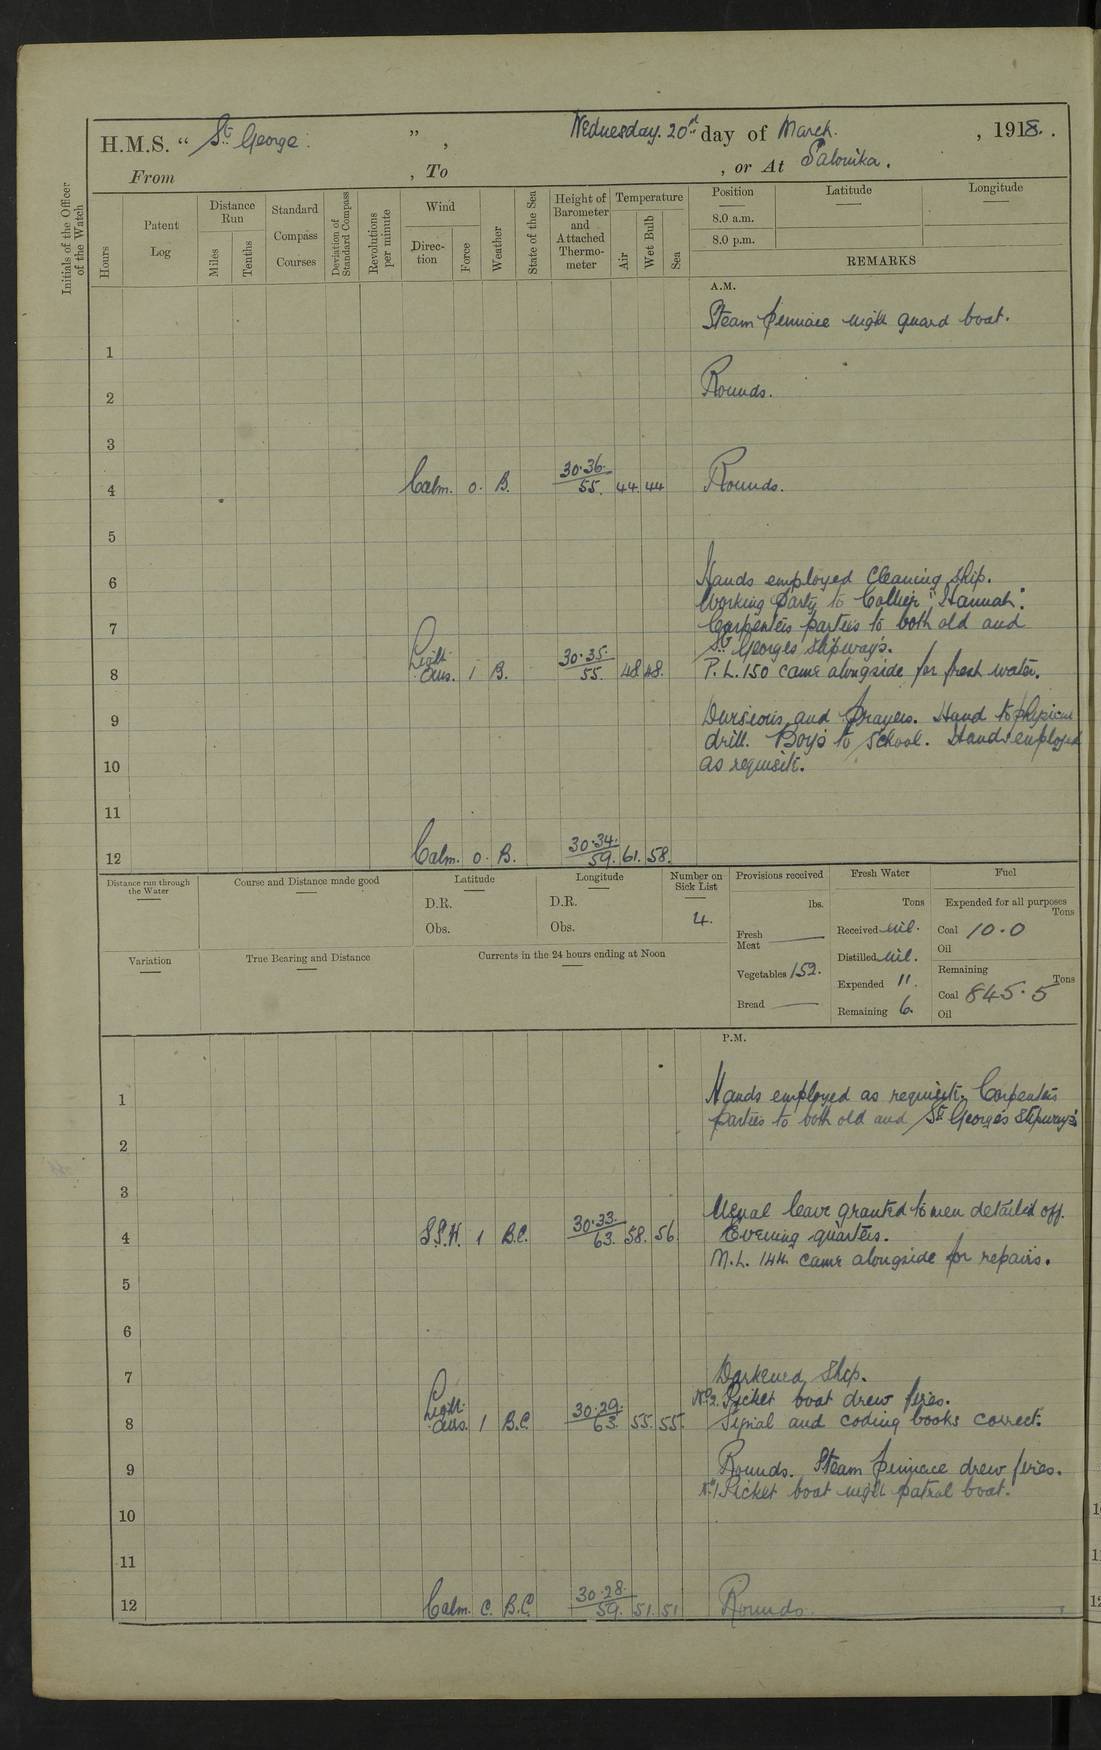 H.M.S. “ St George. ” , Wednesday. 20th day of March. , 1918.
From , To , or At Salonika.
Initials of the Officer of the Watch
Hours
Patent Log
Distance Run
Miles
Tenths
Standard Compass Courses
Deviation of Standard Compass
Revolutions per minute
Wind
Direction
Force
Weather
State of the Sea
Height of Barometer and Attached Thermometer
Temperature
Air
Wet Bulb
Sea
Position Latitude Longitude
8.0 a.m.
8.0 p.m.
REMARKS
A.M.
Steam pinnace night guard boat.
1
2 Rounds.
3
4 Calm. 0. B. 30.36. 55. 44. 44 Rounds.
5
6 Hands employed cleaning ship.
Working party to Collier "Hannah".
7 Carpenters parties to both old and
St Georges slipway's.
8 Light airs. 1 B. 30.35. 55. 48. 48. P.L. 150 came alongside for fresh water.
9 Divisions and Prayers. Hand to physical
drill. Boys to School. Hands employed
10 as requisite.
11
12 Calm. 0. B. 30.34. 59. 61. 58.
Distance run through the Water
Course and Distance made good
Latitude
D.R.
Obs.
Longitude
D.R.
Obs.
Number on Sick List
4.
Provisions received
lbs.
Fresh Meat
Vegetables 152.
Bread
Fresh Water
Tons
Received nil.
Distilled nil.
Expended 11.
Remaining 6.
Fuel
Expended for all purposes
Tons
Coal 10.0
Oil
Remaining
Tons
Coal 845.5
Oil
Variation
True Bearing and Distance
Currents in the 24 hours ending at Noon
P.M.
1 Hands employed as requisite. Carpenters
parties to both old and St Georges Slipway's
2
3
Usual leave granted to men detailed off.
4 S.S.W. 1 B.C. 30.33. 63. 58. 56 Evening quarters.
M.L. 144 came alongside for repairs.
5
6
7 Darkened ship.
No 2. Picket boat drew fires.
8 Light airs. 1 B.C. 30.29. 63. 55. 55. Signal and coding books correct.
9 Rounds. Steam pinnace drew fires.
No 1 Picket boat night patrol boat.
10
11
12 Calm. C. B.C. 30.28. 59. 51. 51 Rounds.